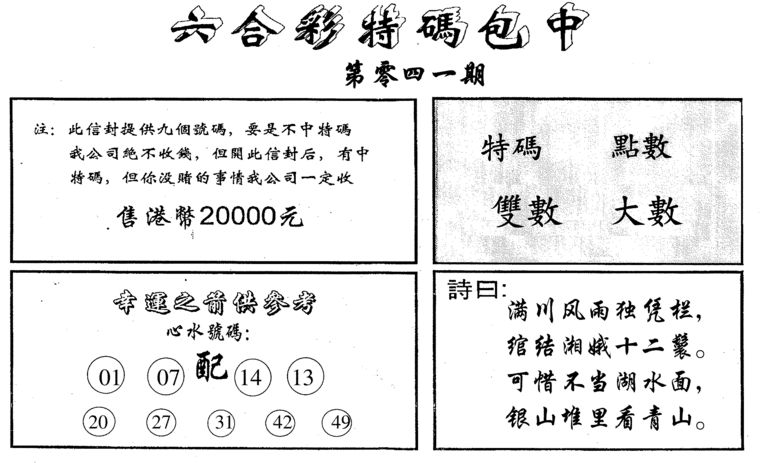 六合彩特碼包中
第零四一期
注：此信封提供九個號碼，要是不中特碼
我公司絕不收錢，但開此信封后，有中
特碼，但你没賭的事情我公司一定收
售港幣20000元
特碼 點數
雙數 大數
幸運之箭供參考
心水號碼：
配
01 07 14 13
20 27 31 42 49
詩曰：
满川风雨独凭栏，
绾结湘娥十二鬟。
可惜不当湖水面，
银山堆里看青山。